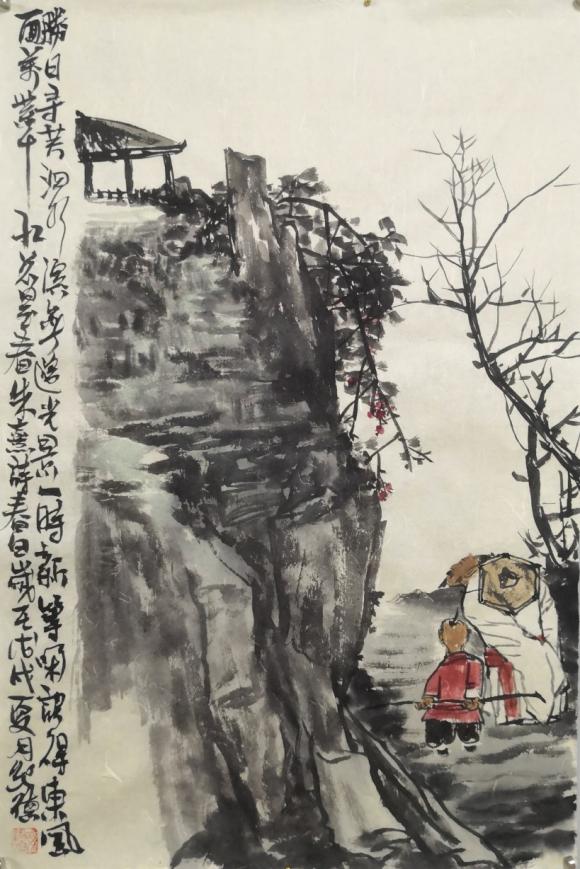 勝日寻芳泗水滨無邊光景一時新等閑识得東風
面萬紫千红总是春朱熹詩春日歲在戊戌夏月